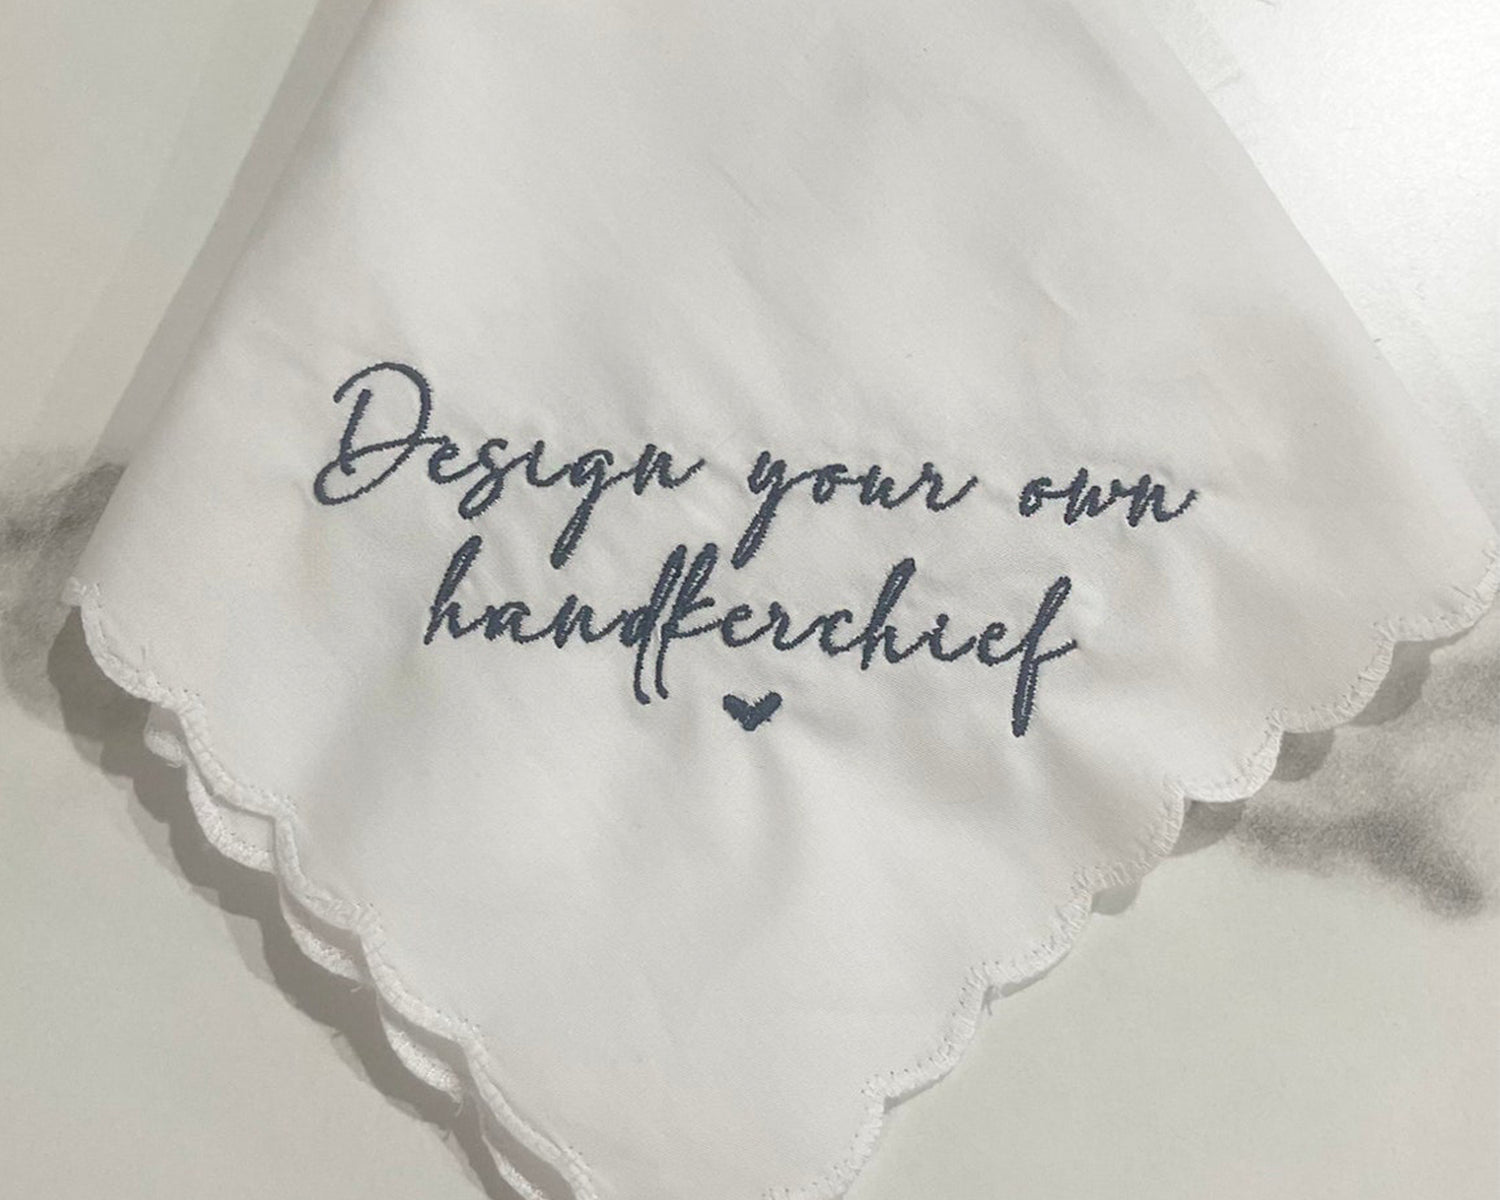 Design your own
handkerchief